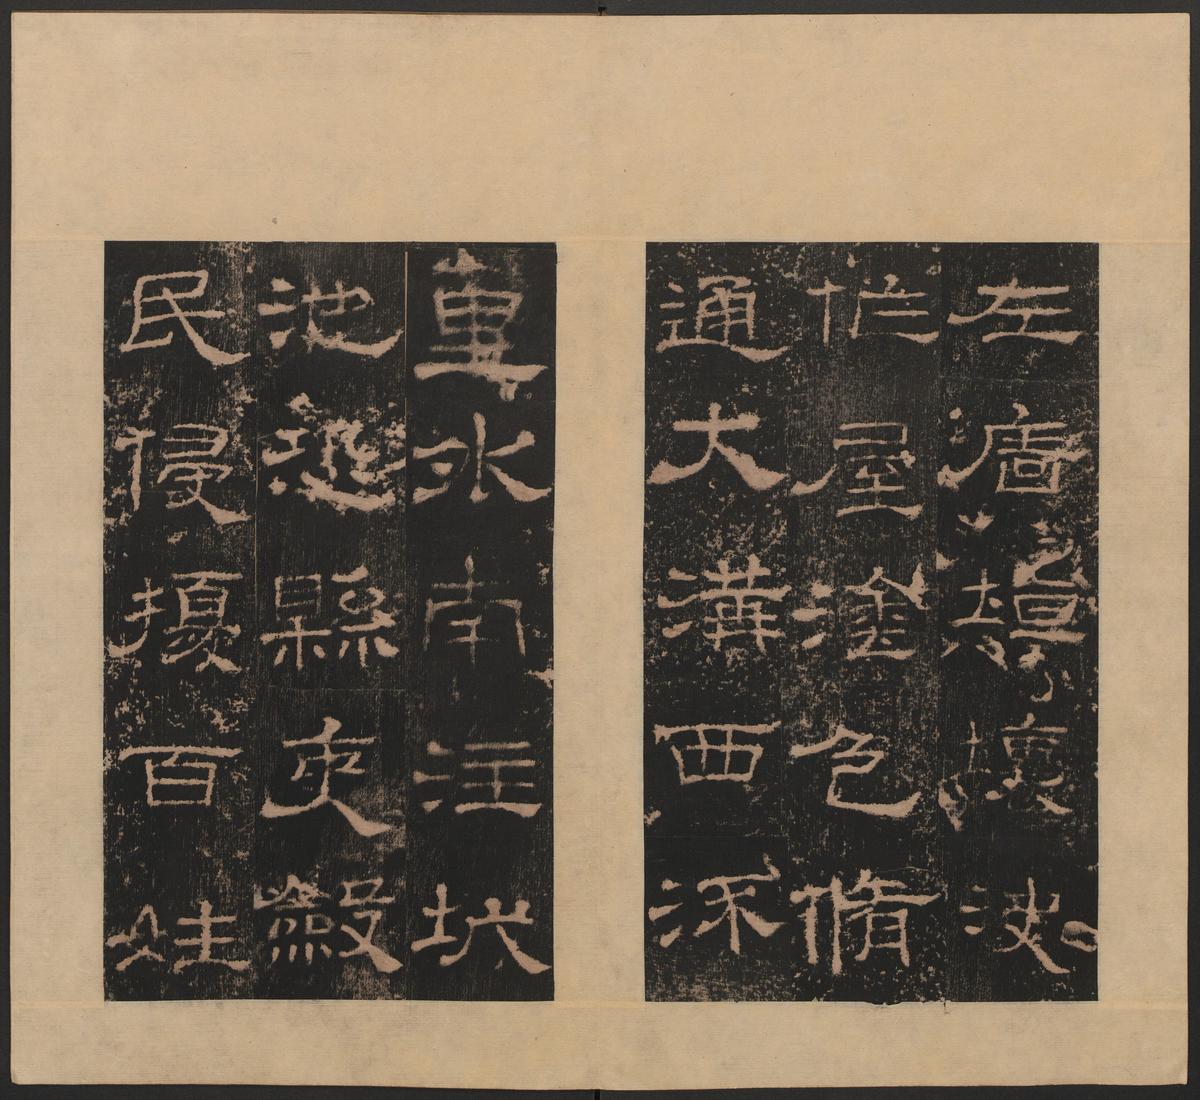 左廧垣壞決
作屋塗色脩
通大溝西流
里外南注城
池恐縣吏斂
民侵擾百姓